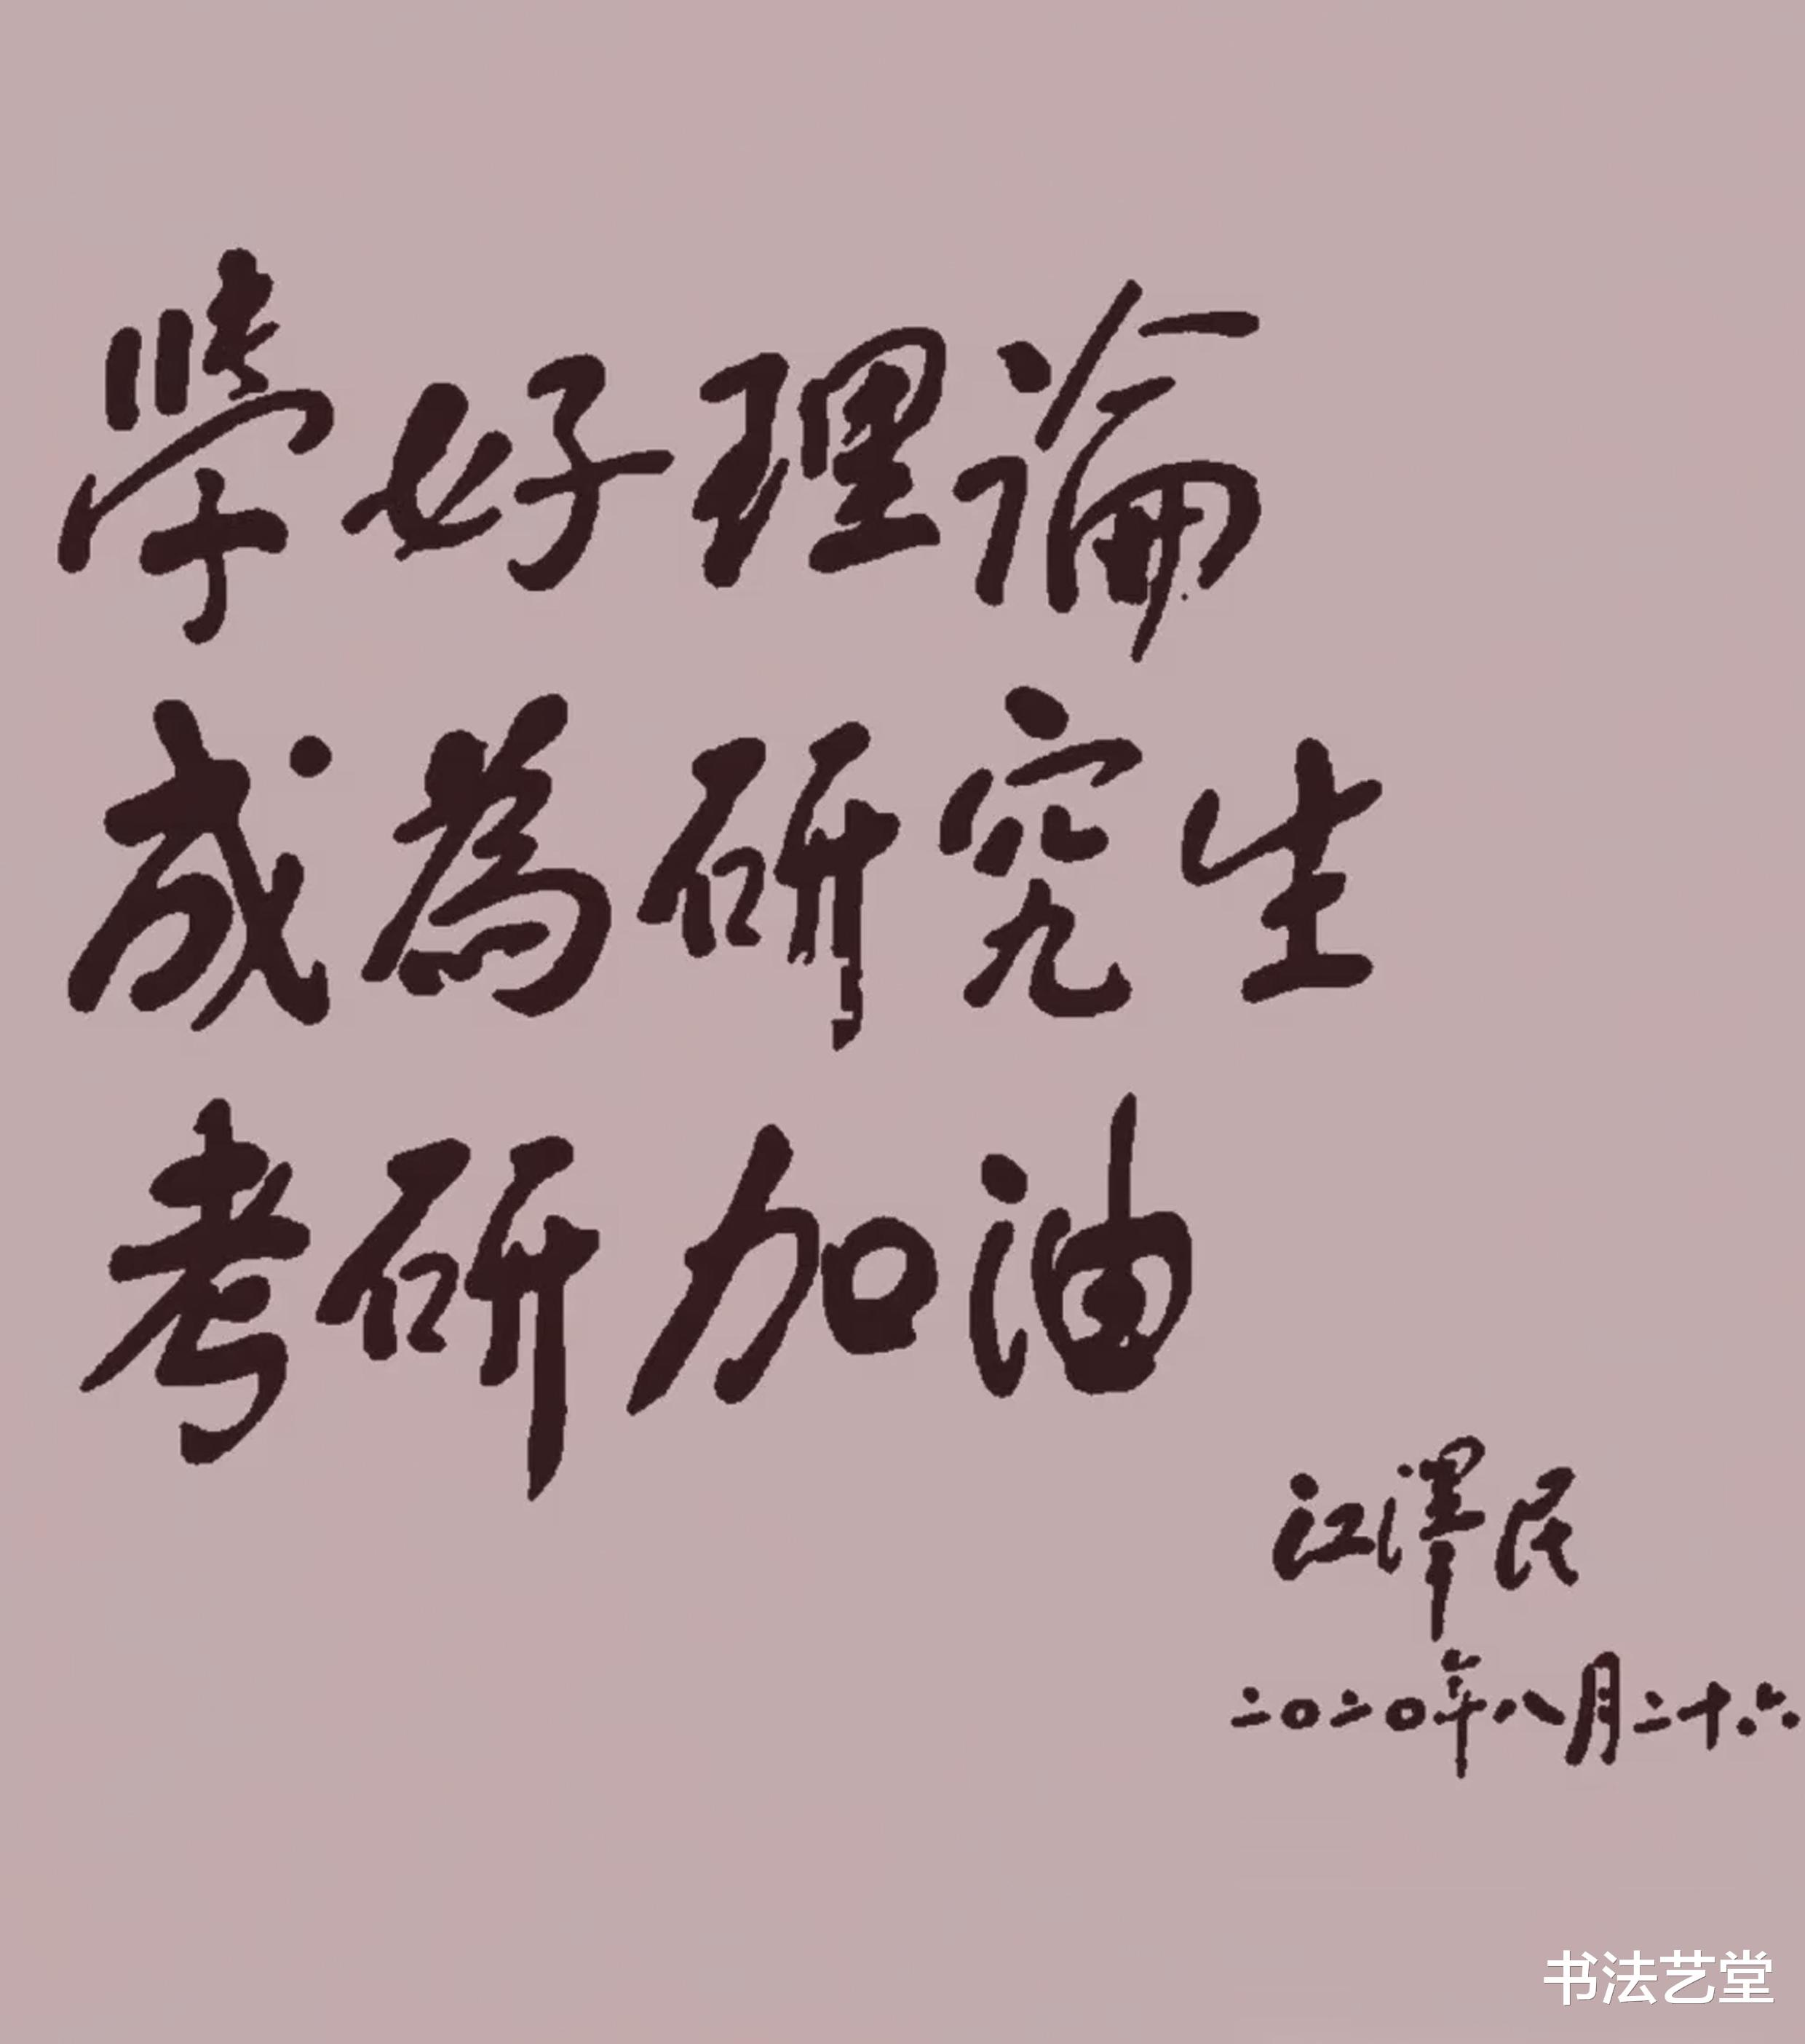 学好理論
成為研究生
考研加油
江澤民
二〇二〇年八月二十六
书法艺堂